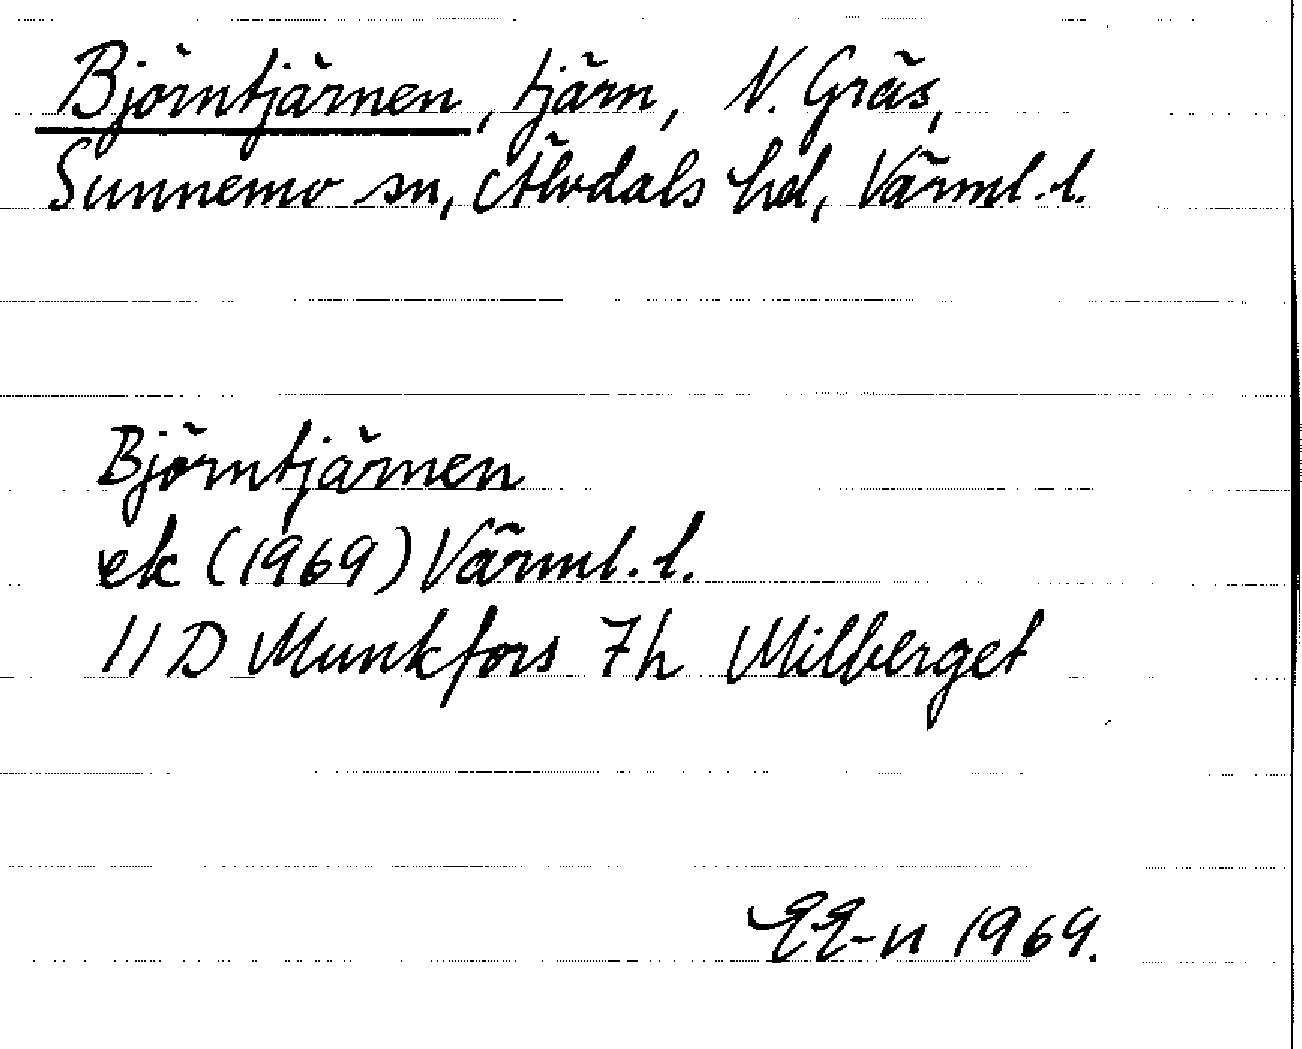 Björntjärnen, tjärn, N. Gräs,
Sunnemo sn, Älvdals hd, Värml. l.
Björntjärnen
ek (1969) Värml. l.
11 D Munkfors 7h Milberget
EE-n 1969.